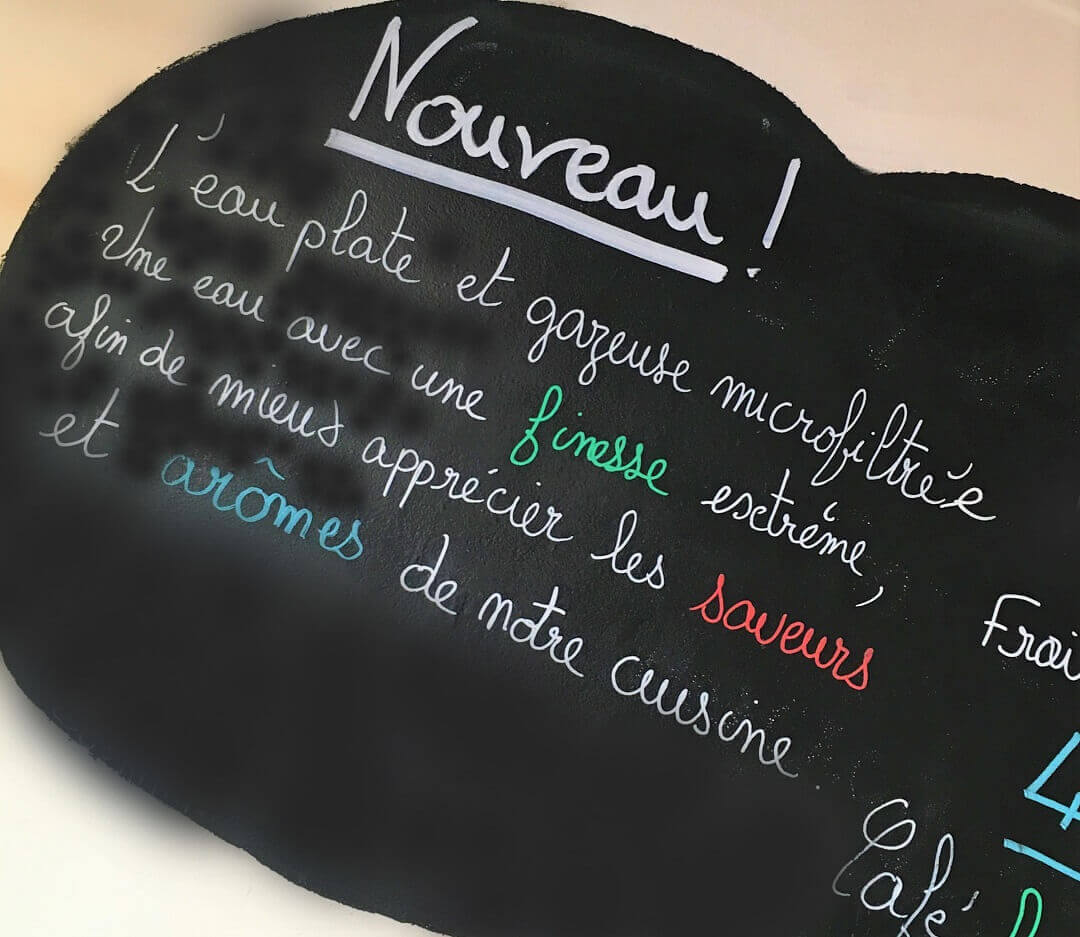 Nouveau !
L'eau plate et gazeuse microfiltrée
Une eau avec une finesse extrême,
afin de mieux apprécier les saveurs
et arômes de notre cuisine.
Café